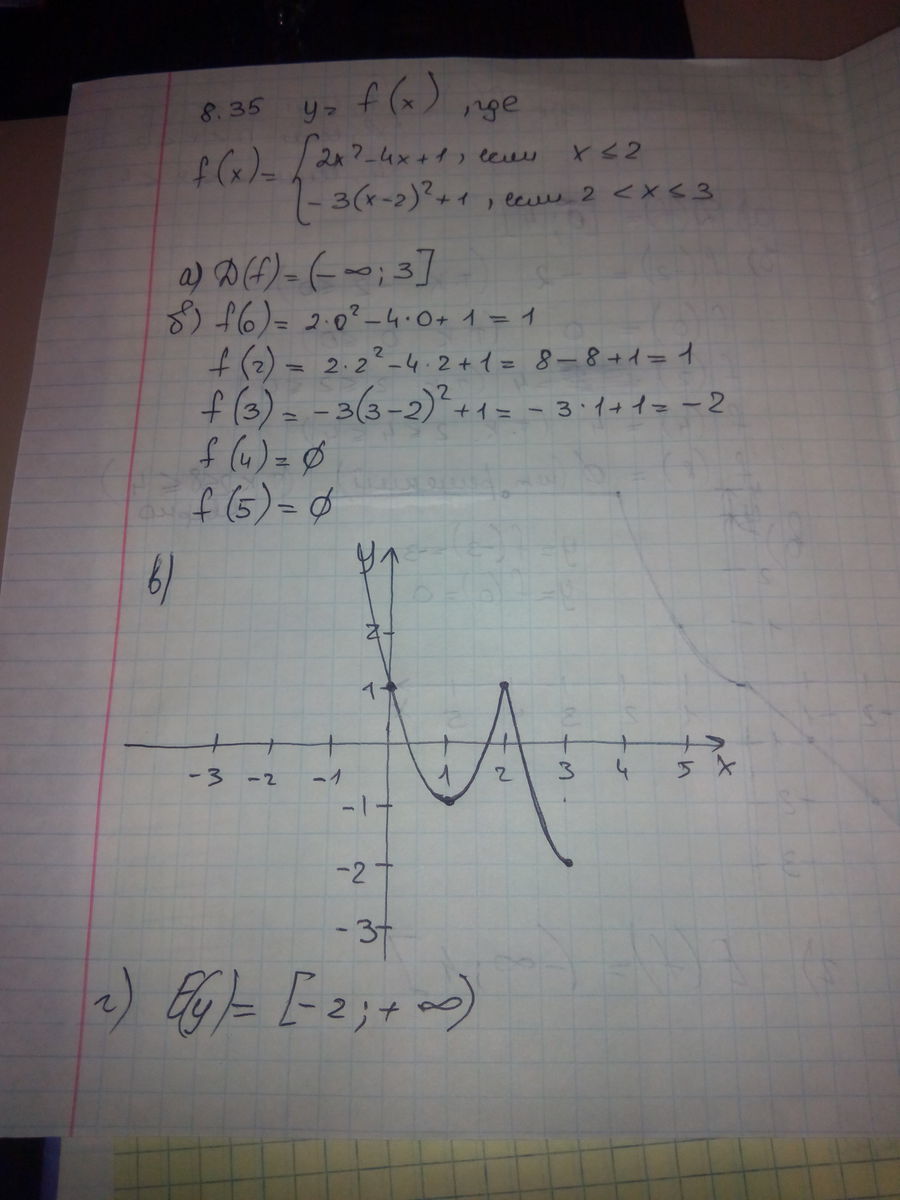 8.35 y = f(x), где
f(x) = { 2x² - 4x + 1, если x ≤ 2
- 3(x-2)² + 1, если 2 < x ≤ 3
а) D(f) = (-∞; 3]
б) f(0) = 2·0² - 4·0 + 1 = 1
f(2) = 2·2² - 4·2 + 1 = 8 - 8 + 1 = 1
f(3) = -3(3-2)² + 1 = -3·1 + 1 = -2
f(4) = ∅
f(5) = ∅
в)
y
2
1
-3 -2 -1 1 2 3 4 5 x
-1
-2
-3
г) E(y) = [-2; +∞)